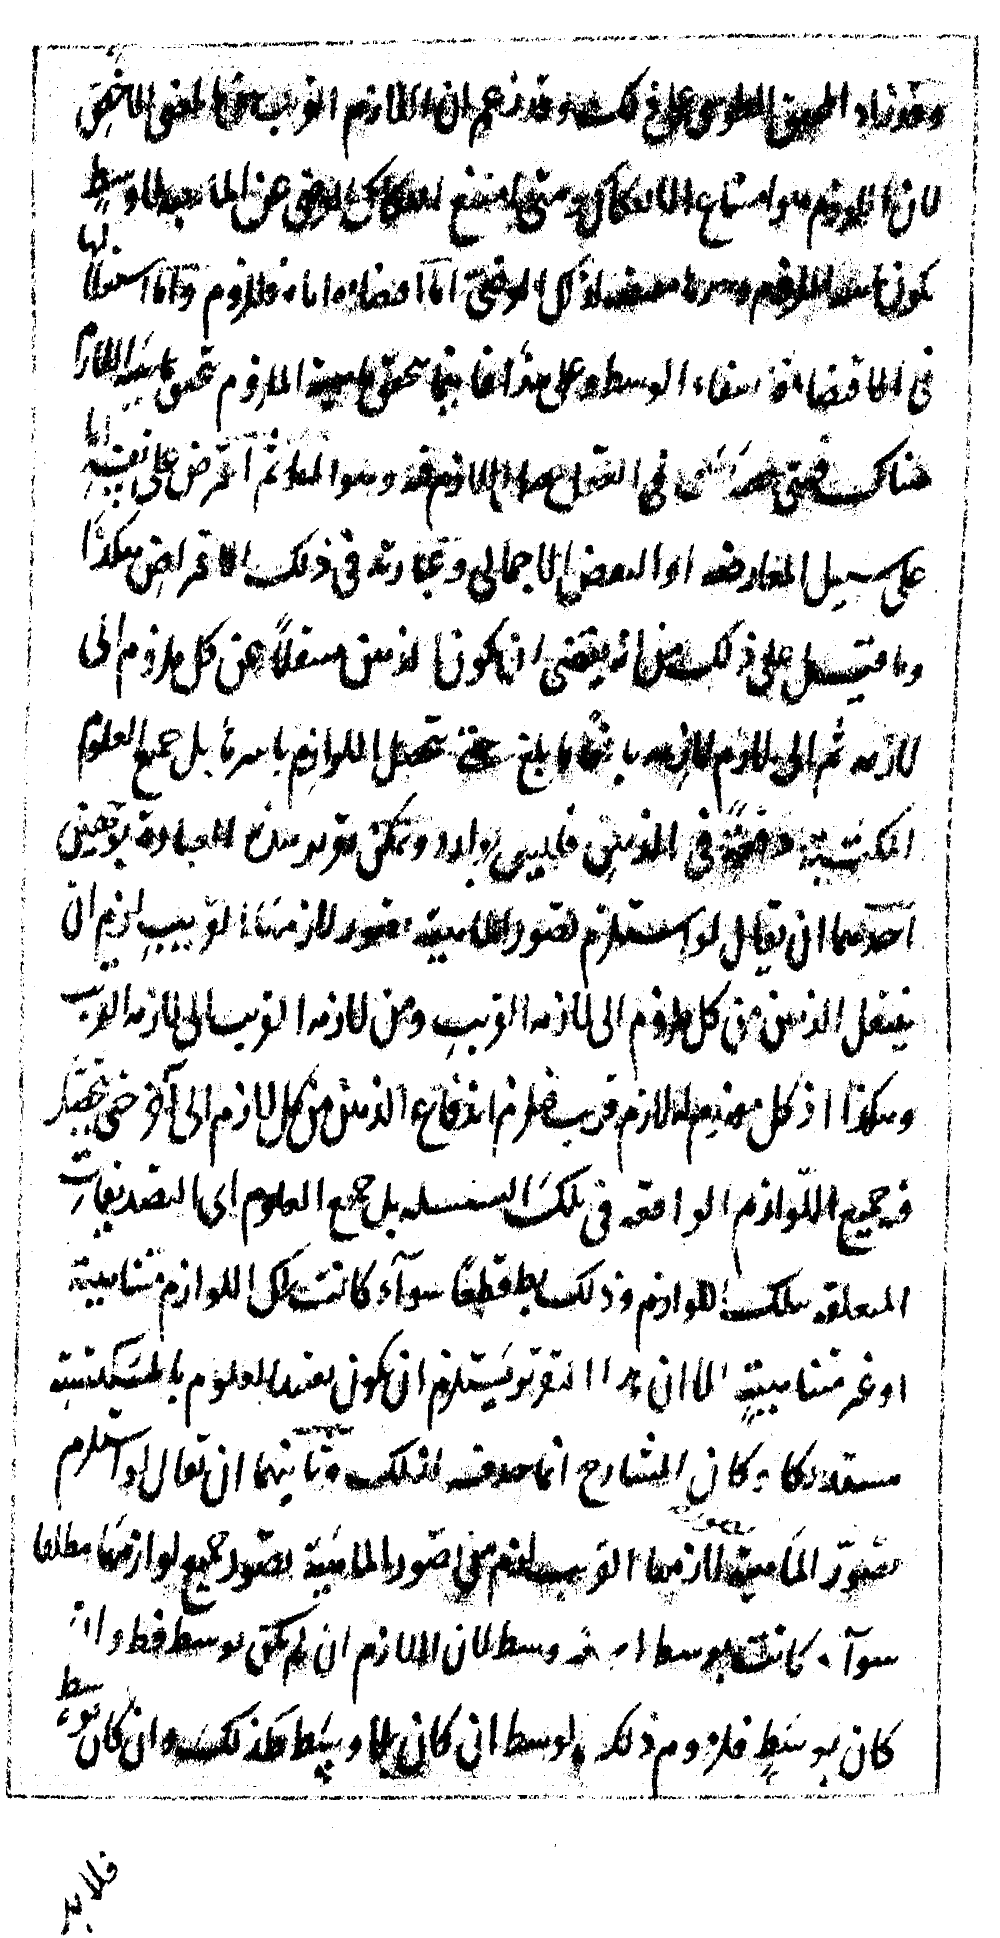 وقد زاد المحقق الطوسى على ذلك وقد زعم ان اللازم القريب بين بالمعنى الاخص
لان اللزوم هو امتناع الانفكاك ومتى امتنع انفكاك العرض عن الماهية بلا وسط
يكون ماهية الملزوم وحدها مقتضية لذلك العرض اما اقتضاء اياه فللزوم واما استقلالها
فى الاقتضاء فلانتفاء الوسط وعلى هذا فاينما تحقق ماهية الملزوم تحقق ماهية اللازم
هناك فمتى حصلت فى العقل حصل اللازم فيه وهو المط ثم اعترض على نفسه اما
على سبيل المعارضة او النقض الاجمالى وعبارته فى ذلك الاعتراض هكذا
وما قيل على ذلك من انه يقتضى ان يكون الذهن منتقلاً عن كل ملزوم الى
لازمه ثم الى لازم لازمه بالغاً ما بلغ حتى تحصل اللوازم باسرها بل جميع العلوم
المكتسبة دفعةً فى الذهن فليس بوارد ويمكن تقرير هذه العبارة بوجهين
احدهما ان يقال لو استلزم تصور الماهية تصور لازمها القريب لزم ان
ينتقل الذهن من كل ملزوم الى لازمه القريب ومن لازمه القريب الى لازمه القريب
وهكذا اذ كل مفهوم له لازم قريب فلزم اندفاع الذهن من كل لازم الى آخر حتى تحصل
فيه جميع اللوازم الواقعة فى تلك السلسلة بل جميع العلوم اى التصديقات
المتعلقة بتلك اللوازم وذلك بط قطعًا سوآء كانت تلك اللوازم متناهية
او غير متناهية الا ان هذا التقرير يستلزم ان يكون تقييد العلوم بالمكتسبة
مستدركا وكان الشارح انما حذفه لذلك وثانيهما ان يقال لو استلزم
تصور الماهية لازمها القريب لزم من تصور الماهية تصور جميع لوازمها مطلقا
سوآء كانت بوسط او بغير وسط لان اللازم ان لم يكن بوسط فظ وان
كان بوسط فلزوم ذلك الوسط ان كان بلا وسط فكذلك وان كان بوسط
فلا بد